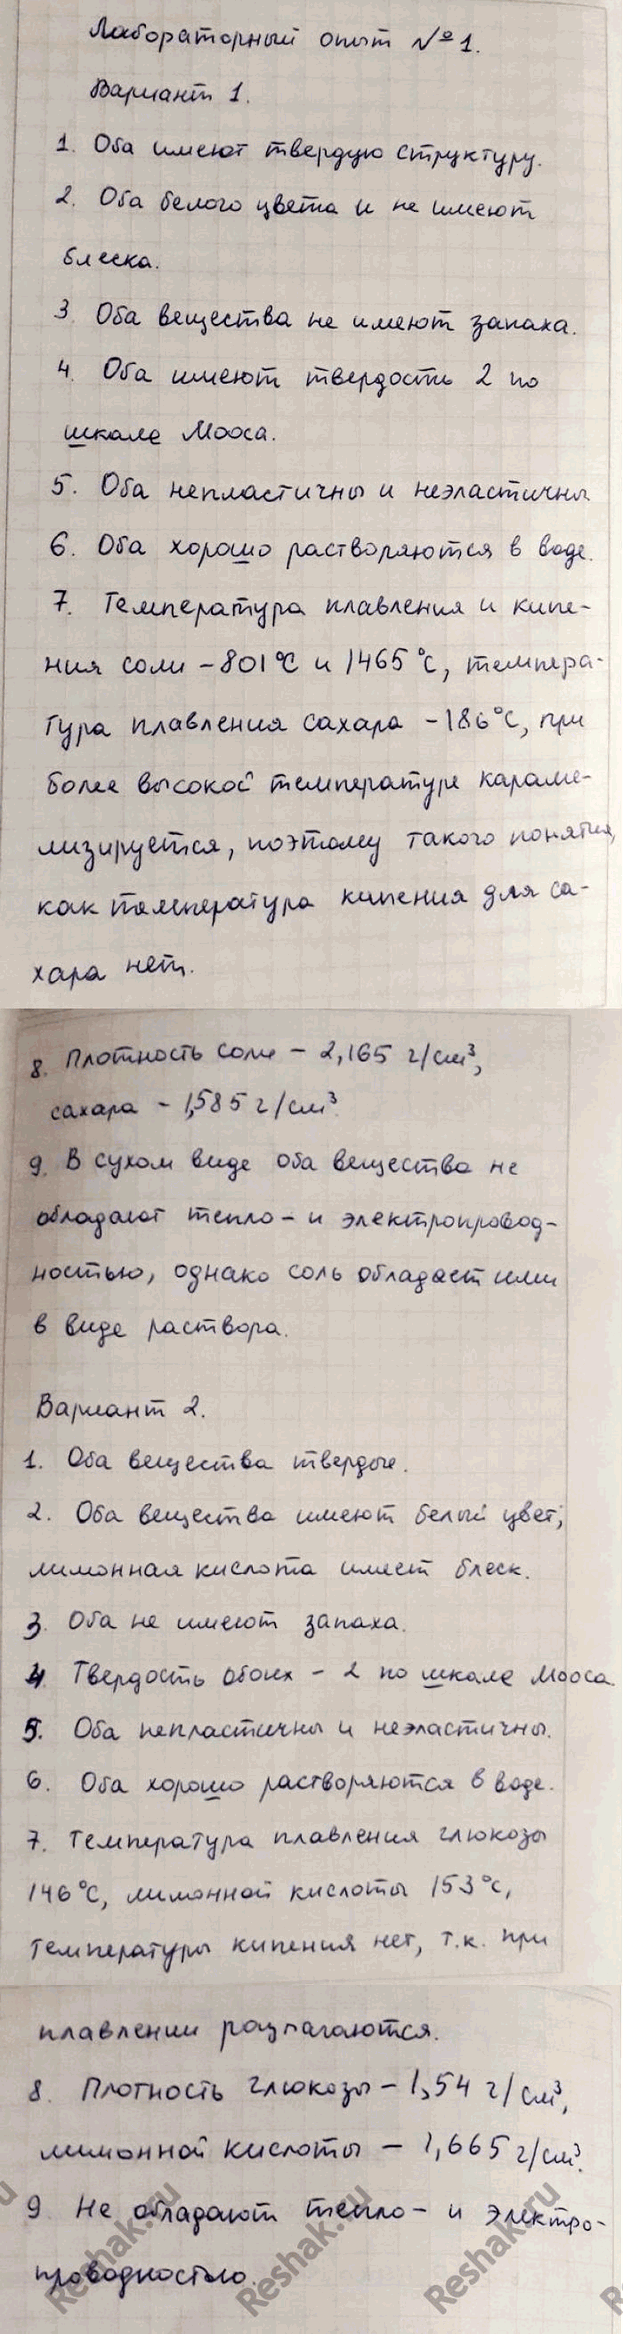 Лабораторный опыт №1.
Вариант 1.
1. Оба имеют твердую структуру.
2. Оба белого цвета и не имеют
блеска.
3 Оба вещества не имеют запаха.
4. Оба имеют твердость 2 по
шкале Мооса.
5. Оба непластичны и неэластичны
6. Оба хорошо растворяются в воде.
7. Температура плавления и кипе-
ния соли - 801°C и 1465°C, темпера-
тура плавления сахара - 186°C, при
более высокой температуре караме-
лизируется, поэтому такого понятия,
как температура кипения для са-
хара нет.
8. Плотность соли - 2,165 г/см³,
сахара - 1,585 г/см³
9. В сухом виде оба вещества не
обладают тепло- и электропровод-
ностью, однако соль обладает ими
в виде раствора.
Вариант 2.
1. Оба вещества твердые.
2. Оба вещества имеют белый цвет,
лимонная кислота имеет блеск.
3. Оба не имеют запаха.
4. Твердость обоих - 2 по шкале Мооса.
5. Оба непластичны и неэластичны.
6. Оба хорошо растворяются в воде.
7. Температура плавления глюкозы
146°C, лимонной кислоты 153°C,
температуры кипения нет, т.к. при
плавлении разлагаются.
8. Плотность глюкозы - 1,54 г/см³,
лимонной кислоты - 1,665 г/см³.
9 Не обладают тепло- и электро-
проводностью.
Reshak.ru Reshak.ru Reshak.ru